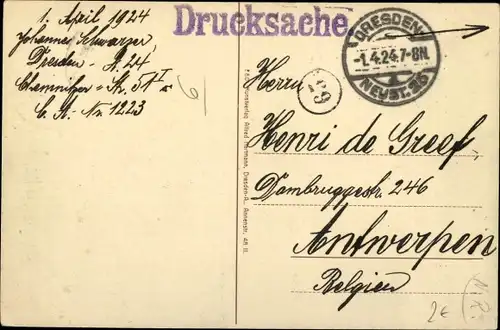 Drucksache
1. April 1924
Johannes Schwarzer,
Dresden - A. 24
Chemnitzer - Str. 51 I
C. A. - No 1223
6
DRESDEN
-1.4.24.7-8N.
NEUST.
Herrn
Henri de Greef,
Dambruggestr. 246
Antwerpen
Belgien
Alfred Hartmann, Dresden-A., Annenstr. 48 II.
N.R.
2€